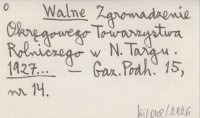 Walne Zgromadzenie
Okręgowego Towarzystwa
Rolniczego w N. Targu.
1927... — Gaz. Podh. 15,
nr 14.